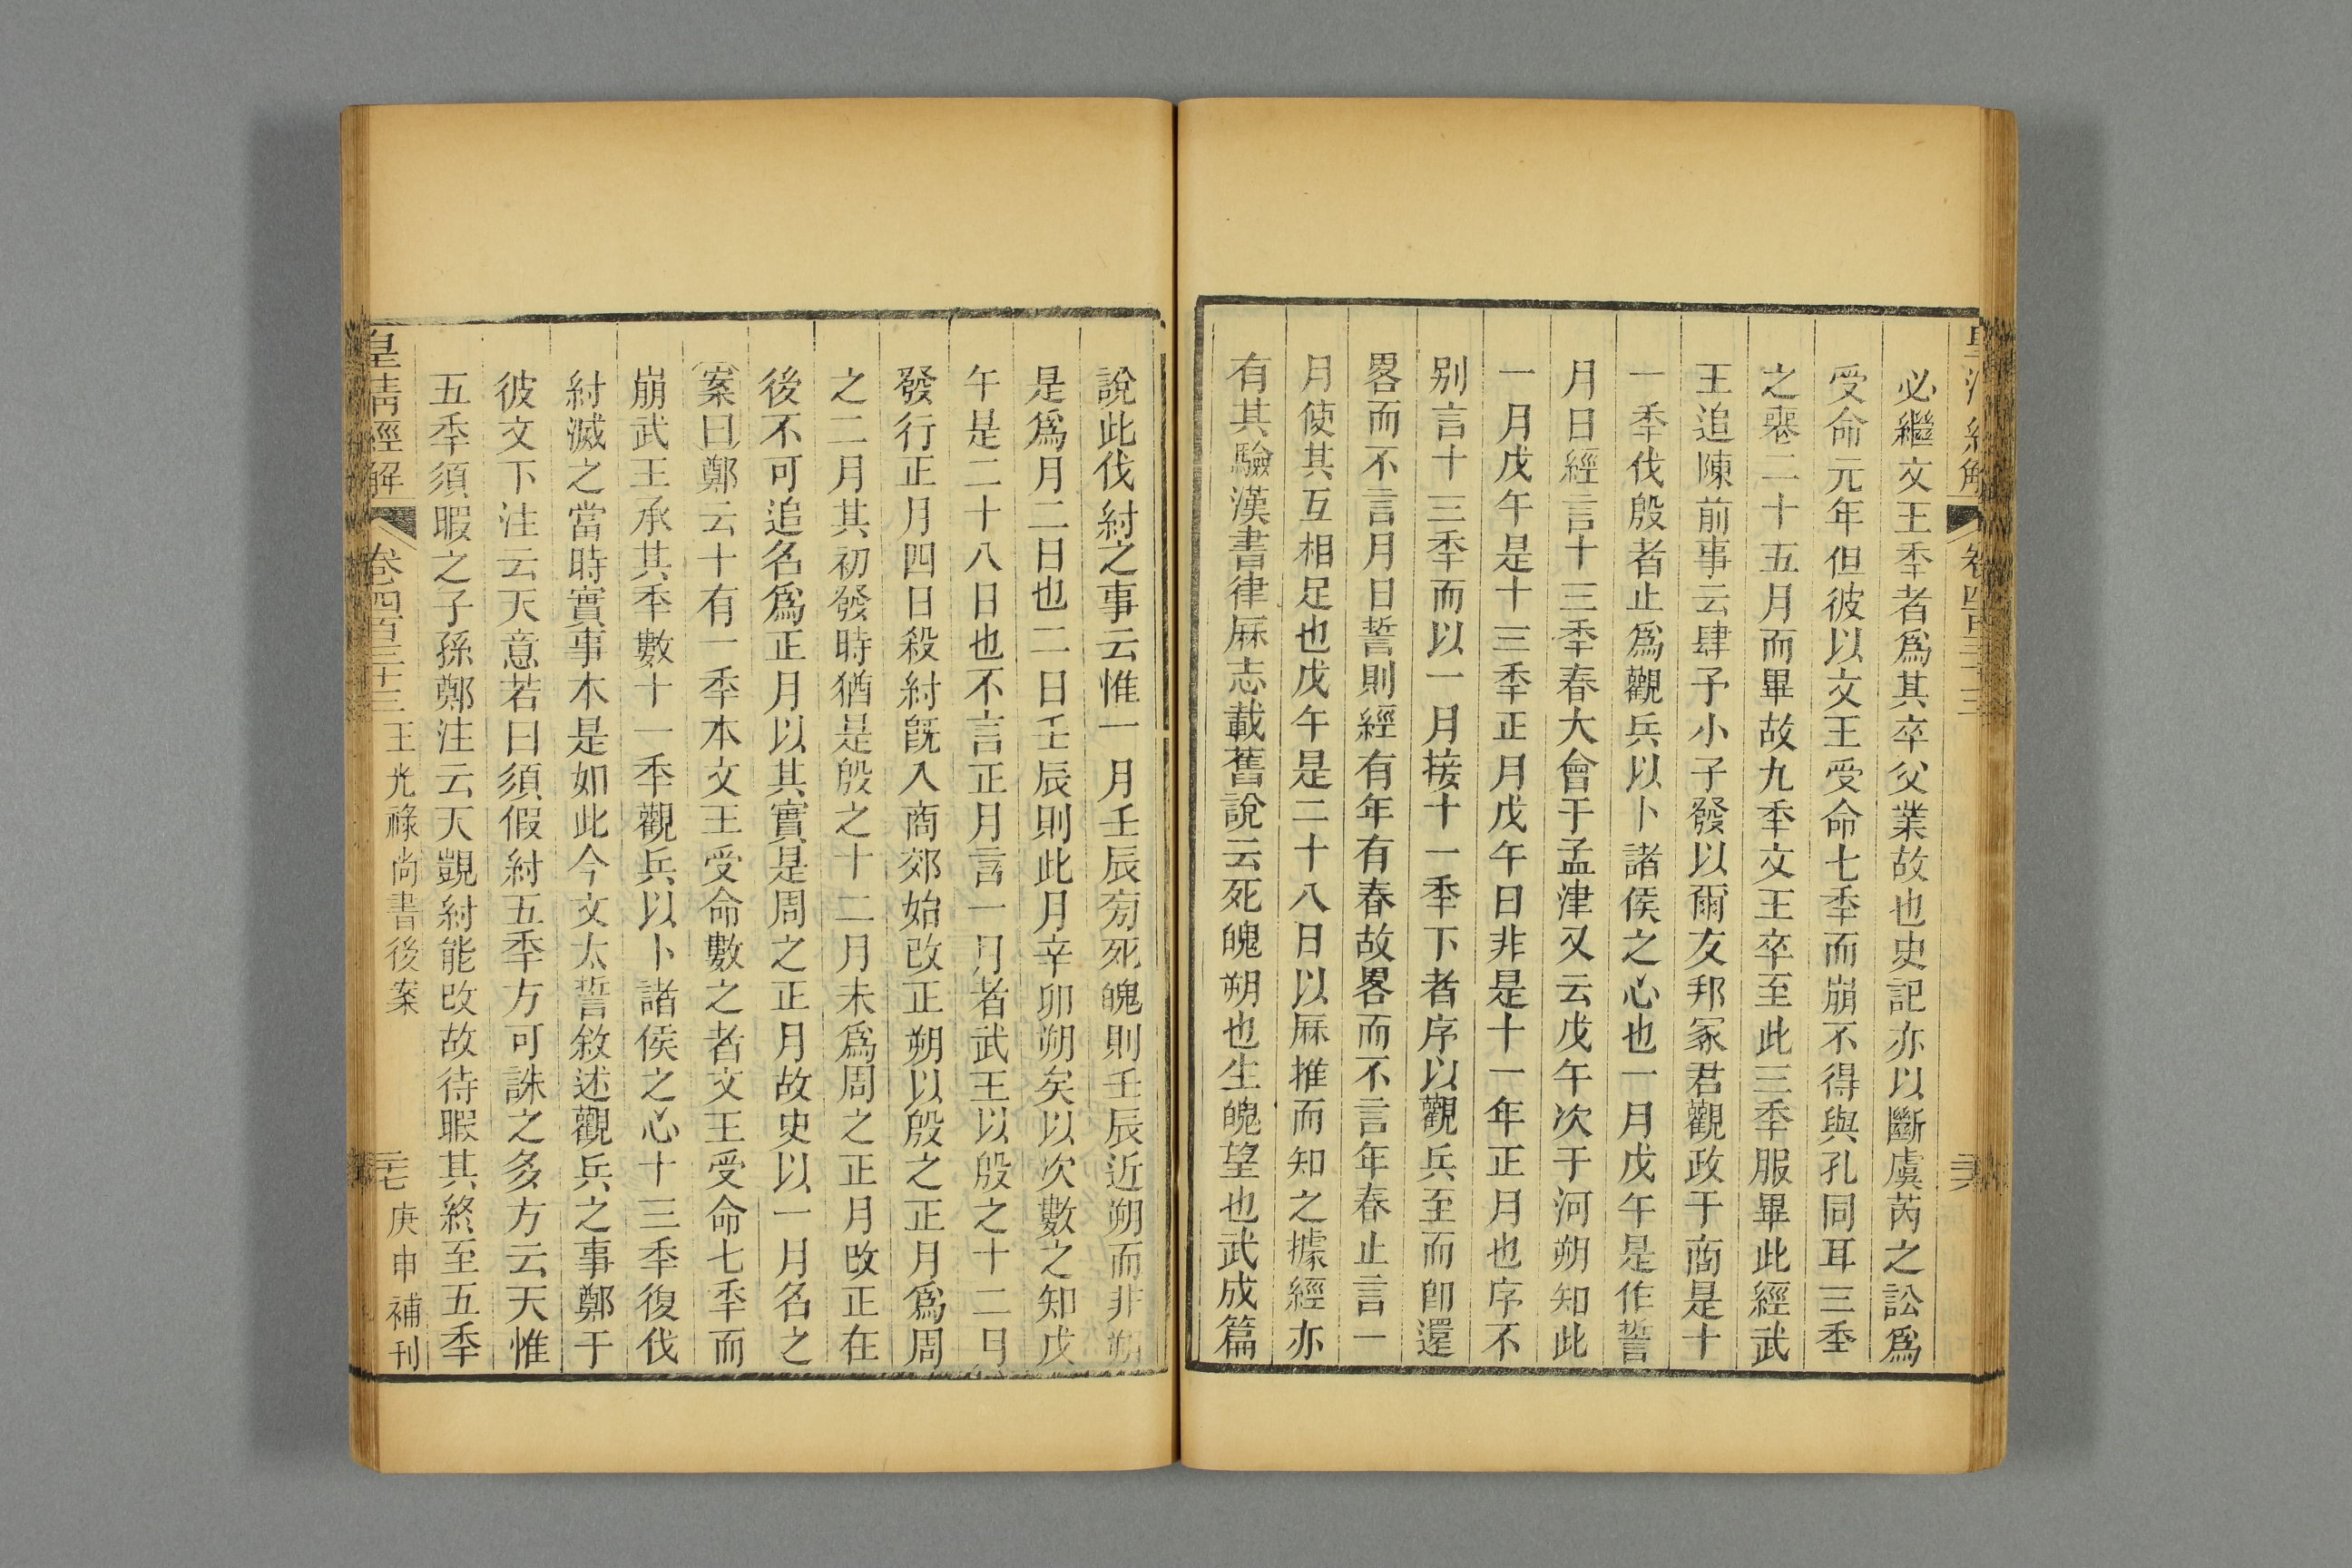 必繼文王秊者爲其卒父業故也史記亦以斷虞芮之訟爲
受命元年但彼以文王受命七秊而崩不得與孔同耳三秊
之喪二十五月而畢故九秊文王卒至此三秊服畢此經武
王追陳前事云肆予小子發以爾友邦冢君觀政于商是十
一秊伐殷者止爲觀兵以卜諸侯之心也一月戊午是作誓
月日經言十三秊春大會于孟津又云戊午次于河朔知此
一月戊午是十三秊正月戊午日非是十一年正月也序不
别言十三秊而以一月接十一秊下者序以觀兵至而卽還
畧而不言月日誓則經有年有春故畧而不言年春止言一
月使其互相足也戊午是二十八日以厤推而知之據經亦
有其驗漢書律厤志載舊說云死魄朔也生魄望也武成篇
說此伐紂之事云惟一月壬辰㫄死魄則壬辰近朔而非朔
是爲月二日也二日壬辰則此月辛卯朔矣以次數之知戊
午是二十八日也不言正月言一月者武王以殷之十二月
發行正月四日殺紂旣入商郊始改正朔以殷之正月爲周
之二月其初發時猶是殷之十二月未爲周之正月改正在
後不可追名爲正月以其實是周之正月故史以一月名之
案曰鄭云十有一秊本文王受命數之者文王受命七秊而
崩武王承其秊數十一秊觀兵以卜諸侯之心十三秊復伐
紂滅之當時實事本是如此今文太誓敘述觀兵之事鄭于
彼文下注云天意若曰須假紂五秊方可誅之多方云天惟
五秊須暇之子孫鄭注云天覬紂能改故待暇其終至五秊
皇清經解
卷四百三十三
王光祿尚書後案
庚申補刊